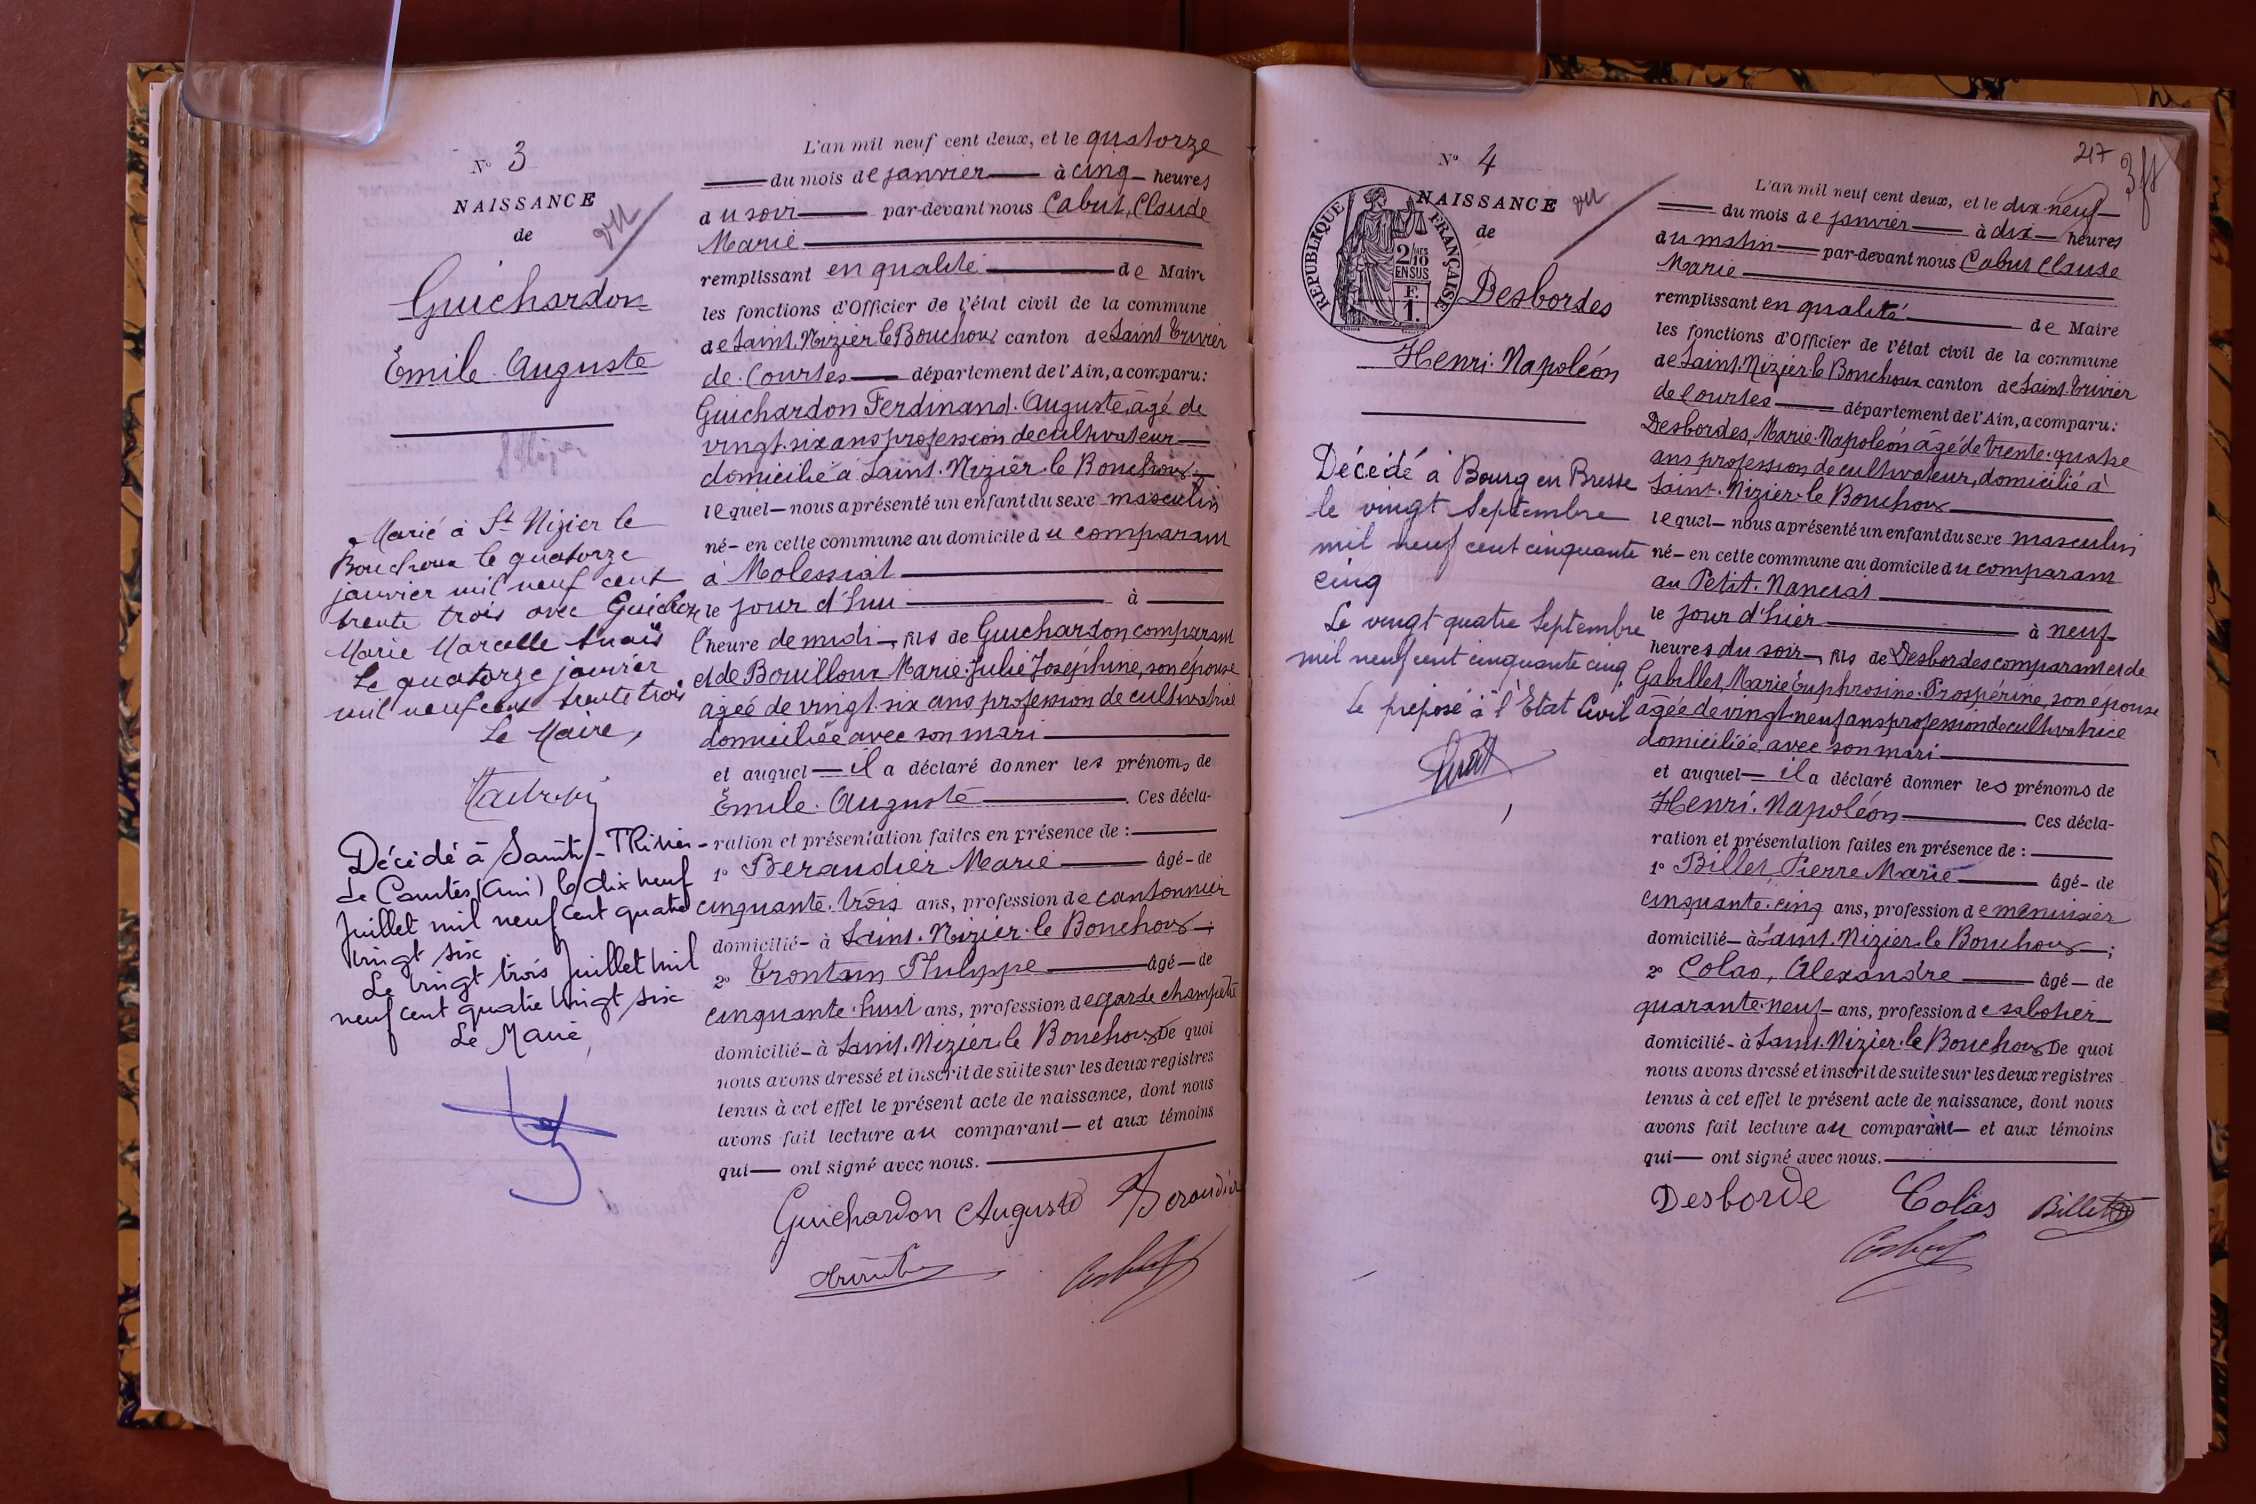 N° 3
NAISSANCE
de
vu
Guichardon
Émile Auguste
Marié à St Nizier le
Bouchoux le quatorze
janvier mil neuf cent
trente trois avec Guichon
Marie Marcelle Anaïs
Le quatorze janvier
mil neuf cent trente trois
Le Maire,
Décédé à Saint-Trivier-
de Courtes (Ain) le dix neuf
Juillet mil neuf cent quatre
vingt six
Le vingt trois Juillet mil
neuf cent quatre vingt six
Le Maire,
L'an mil neuf cent deux, et le quatorze
du mois de janvier à cinq heures
du soir par-devant nous Cabut, Claude
Marie
remplissant en qualité de Maire
les fonctions d'Officier de l'état civil de la commune
de Saint.Nizier le Bouchoux canton de Saint Trivier
de Courtes département de l'Ain, a comparu:
Guichardon Ferdinand. Auguste, âgé de
vingt.six ans profession de cultivateur
domicilié à Saint.Nizier.le Bouchoux;
lequel nous a présenté un enfant du sexe masculin
né en cette commune au domicile du comparant
à Molessiat
le jour d'hui à
l'heure de midi, fils de Guichardon comparant
et de Bouilloux Marie.Julie Joséphine, son épouse
âgée de vingt.six ans profession de cultivatrice
domiciliée avec son mari
et auquel il a déclaré donner les prénoms de
Émile. Auguste. Ces décla-
ration et présentation faites en présence de :
1° Beraudier Marie âgé de
cinquante.trois ans, profession de cantonnier
domicilié à Saint.Nizier.le Bouchoux;
2° Trontin Philippe âgé de
cinquante.huit ans, profession de garde champêtre
domicilié à Saint.Nizier.le Bouchoux De quoi
nous avons dressé et inscrit de suite sur les deux registres
tenus à cet effet le présent acte de naissance, dont nous
avons fait lecture au comparant et aux témoins
qui ont signé avec nous.
Guichardon Auguste Beraudier
Cabut
217
N° 4
NAISSANCE
de
vu
RÉPUBLIQUE FRANÇAISE
2/10
EN SUS
F.
1.
Desbordes
Henri. Napoléon
Décédé à Bourg en Bresse
le vingt Septembre
mil neuf cent cinquante
cinq
Le vingt quatre Septembre
mil neuf cent cinquante cinq,
Le préposé à l'État Civil
L'an mil neuf cent deux, et le dix.neuf
du mois de janvier à dix heures
du matin par-devant nous Cabut Claude
Marie
remplissant en qualité de Maire
les fonctions d'Officier de l'état civil de la commune
de Saint.Nizier.le Bouchoux canton de Saint.Trivier
de Courtes département de l'Ain, a comparu:
Desbordes, Marie.Napoléon âgé de trente.quatre
ans profession de cultivateur, domicilié à
Saint.Nizier.le Bouchoux
lequel nous a présenté un enfant du sexe masculin
né en cette commune au domicile du comparant
au Petit. Nanciat
le jour d'hier à neuf
heures du soir, fils de Desbordes comparant et de
Gabillet, Marie Euphrosine.Prospérine, son épouse
âgée de vingt.neuf ans profession de cultivatrice
domiciliée avec son mari
et auquel il a déclaré donner les prénoms de
Henri. Napoléon. Ces décla-
ration et présentation faites en présence de :
1° Billet, Pierre Marie âgé de
cinquante.cinq ans, profession de menuisier
domicilié à Saint.Nizier.le Bouchoux;
2° Colas, Alexandre âgé de
quarante.neuf ans, profession de sabotier
domicilié à Saint.Nizier.le Bouchoux De quoi
nous avons dressé et inscrit de suite sur les deux registres
tenus à cet effet le présent acte de naissance, dont nous
avons fait lecture au comparant et aux témoins
qui ont signé avec nous.
Desborde Colas Billet
Cabut